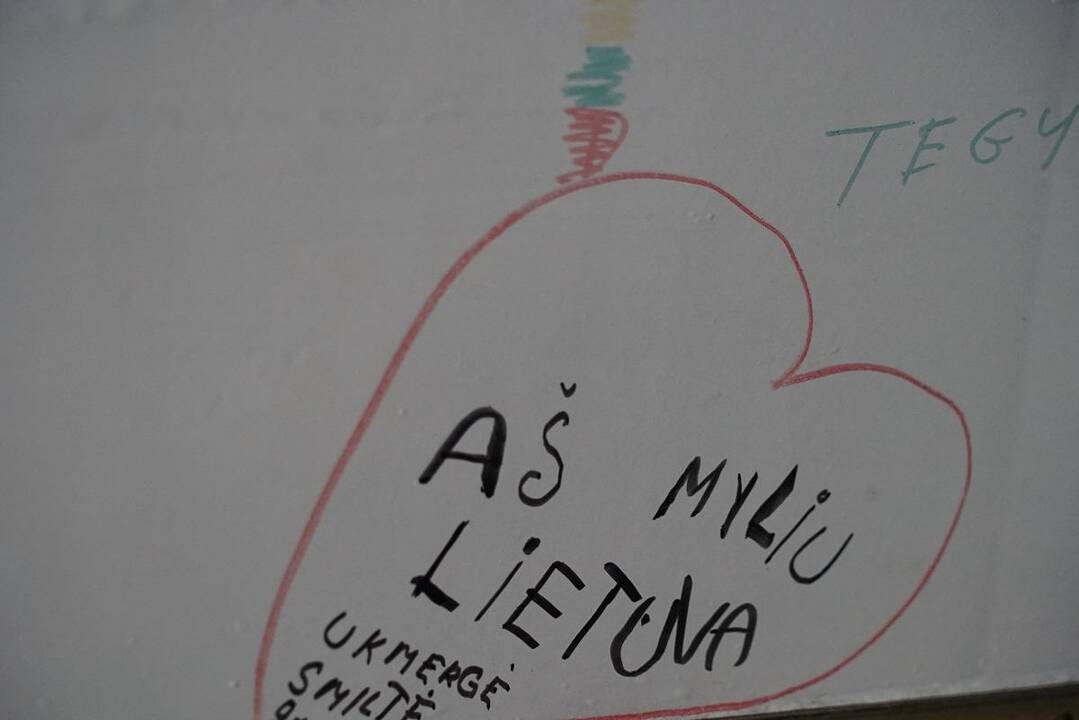 TEGY
AŠ MYLiU
LiETUVA
UKMERGĖ
SMILTĖ